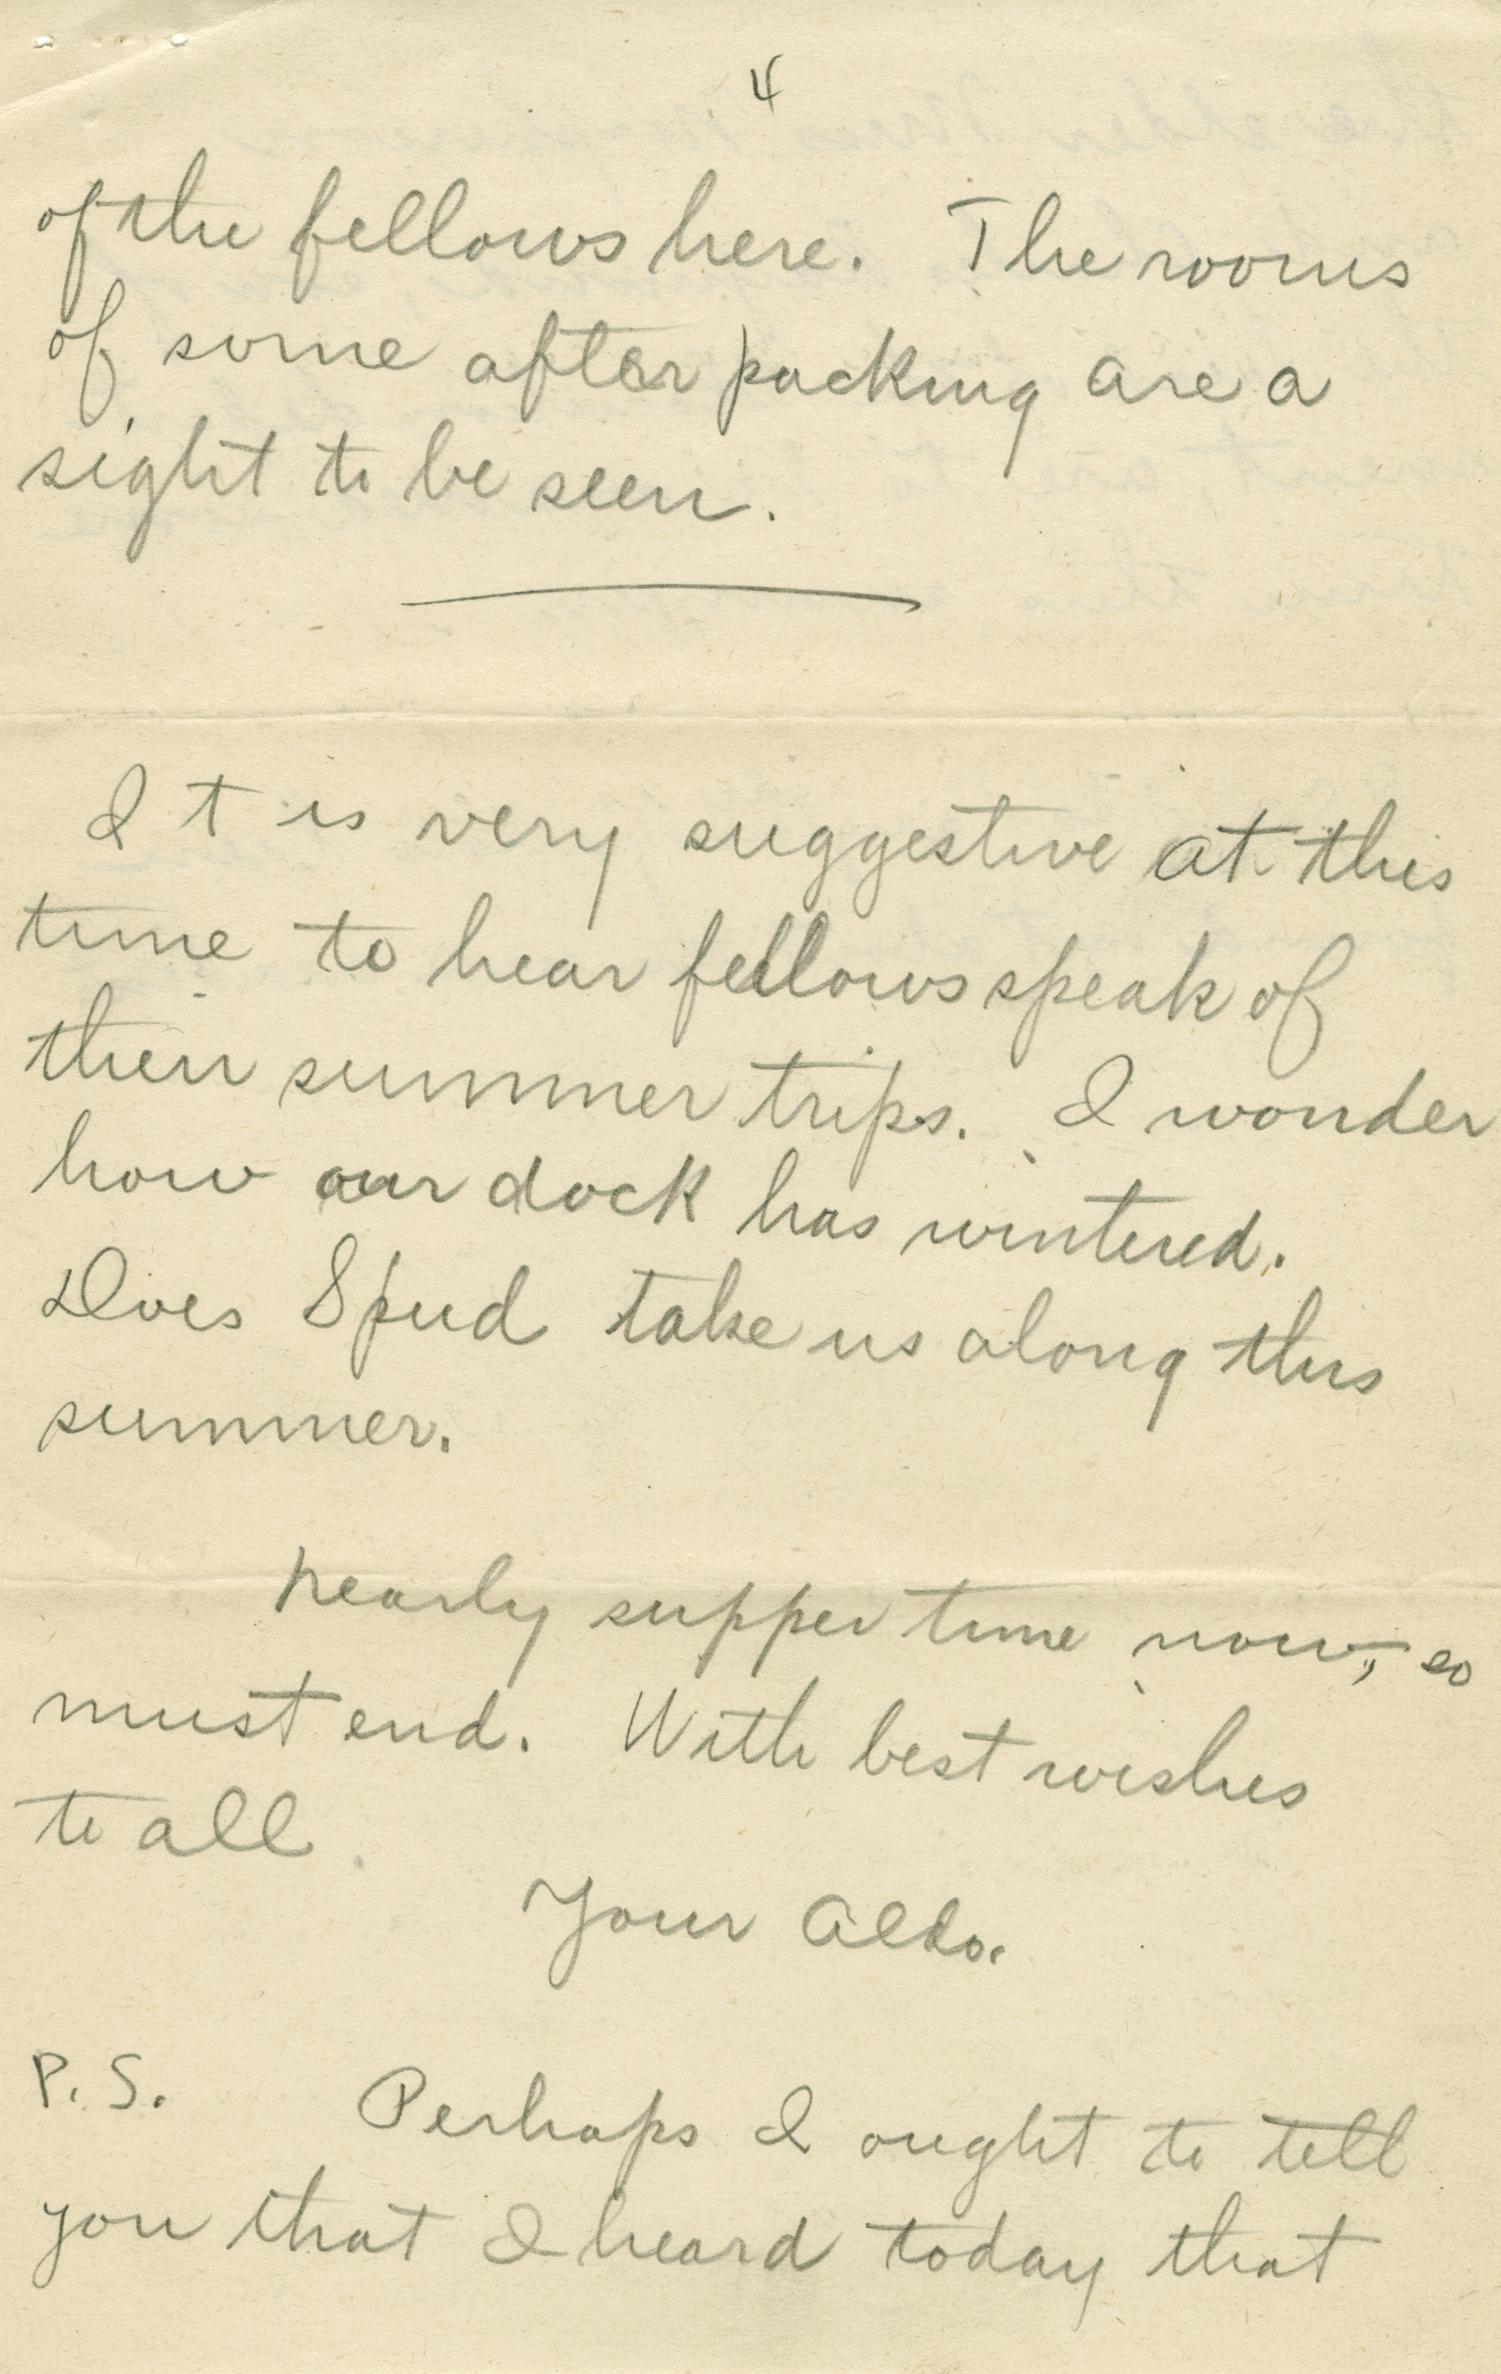 4
of the fellows here. The rooms
of some after packing are a
sight to be seen.
It is very suggestive at this
time to hear fellows speak of
their summer trips. I wonder
how our dock has wintered.
Does Spud take us along this
summer.
Nearly supper time now, so
must end. With best wishes
to all.
Your Aldo.
P.S. Perhaps I ought to tell
you that I heard today that